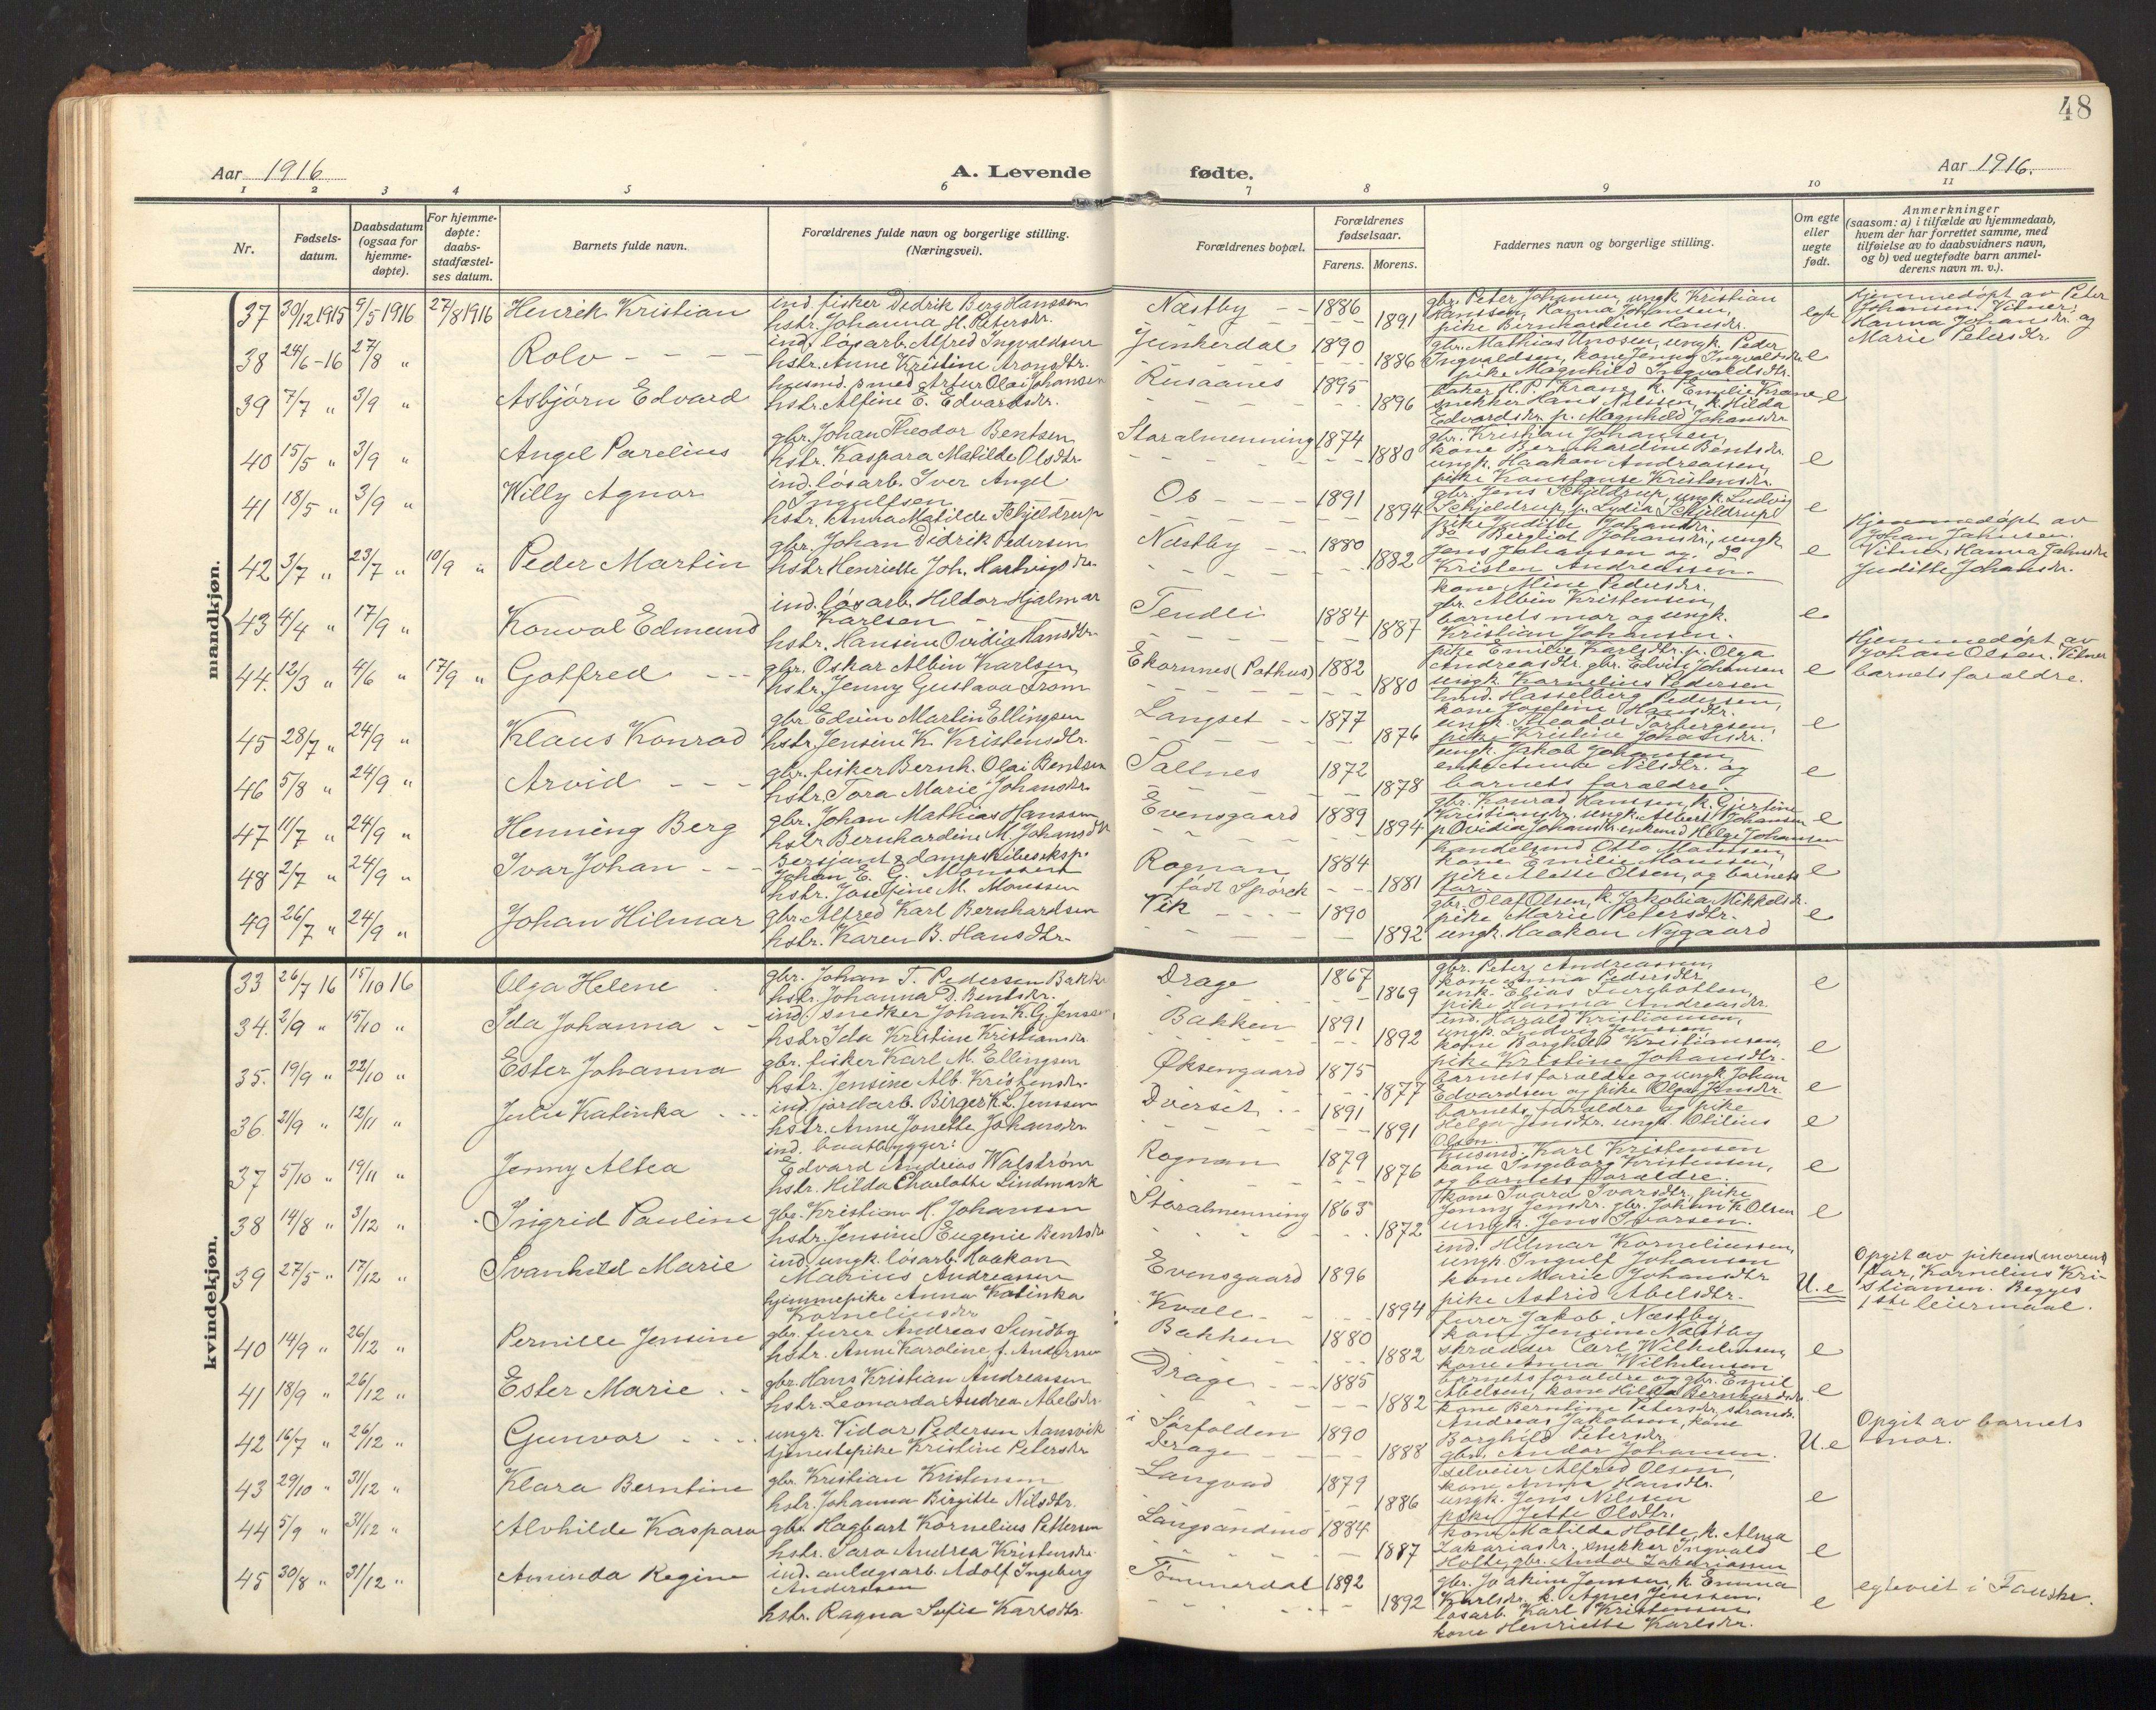 48
Aar 1916
A. Levende
fødte.
Aar 1916.
1 2 3 4 5 6 7 8 9 10 11
Nr.
Fødsels-
datum.
Daabsdatum
(ogsaa for
hjemme-
døpte).
For hjemme-
døpte:
daabs-
stadfæstel-
ses datum.
Barnets fulde navn.
Forældrenes fulde navn og borgerlige stilling.
(Næringsvei).
Forældrenes bopæl.
Forældrenes
fødselsaar.
Farens. Morens.
Faddernes navn og borgerlige stilling.
Om egte
eller
uegte
født.
Anmerkninger
(saasom: a) i tilfælde av hjemmedaab,
hvem der har forrettet samme, med
tilføielse av to daabsvidners navn,
og b) ved uegtefødte barn anmel-
derens navn m. v.).
mandkjøn.
37 30/12 1915 9/5 1916 27/8 1916 Henrik Kristian
ind. fisker Didrik Berg Hanssen
hstr. Johanna H. Petersdtr.
Næstby 1886 1891
gbr. Peter Johansen, ungk. Kristian
Hanssen, Hanna Johansen,
pike Bernhardine Hansdtr.
egte
Hjemmedøpt av Peter
Johansen. Vitner:
Hanna Johansdtr. og
Marie Petersdtr.
38 24/6-16 27/8 " Rolv
ind. løsarb. Alfred Ingvaldsen
hstr. Anne Kristine Aronsdtr.
Junkerdal 1890 1886
gbr. Mathias Unosen, ungk. Peder
Ingvaldsen, kone Jenny Ingvaldsdtr.
pike Magnhild Ingvaldsdtr.
e
39 7/7 " 3/9 " Asbjørn Edvard
husmd. smed Artur Olai Johansen
hstr. Alfine E. Edvardsdtr.
Rusaanes 1895 1896
baker H. P. Krane, k. Emilie Krane
snekker Hans Nilssen, k. Hilda
Edvardsdtr. p. Magnhild Johansdtr.
e
40 15/5 " 3/9 " Angel Parelius
gbr. Johan Theodor Bentsen
hstr. Kaspara Matilde Olsdtr.
Storalmenning 1874 1880
gbr. Kristian Johansen
kone Bernhardine Bentsdtr.
ungk. Haakon Andreassen,
pike Konstanse Kristensdtr.
e
41 18/5 " 3/9 " Willy Agnar
ind. løsarb. Iver Angel
Ingulfsen
hstr. Anna Matilde Schjeldrup
Os 1891 1894
gbr. Jens Schjeldrup, ungk. Ludvig
Schjeldrup, p. Lydia Schjeldrup
pike Juditte Johansdtr.
e
42 3/7 " 23/7 " 10/9 " Peder Martin
gbr. Johan Didrik Pedersen
hstr. Henriette Joh. Hartvigsdtr.
Næstby 1880 1882
do Bergliot Johansdtr., ungk.
Jens Johansen og do
Kristen Andreassen.
kone Aline Pedersdtr.
e
Hjemmedøpt av
Johan Johnsen.
Vitner: Hanna Johnsdtr.
Juditte Johansdtr.
43 4/4 " 17/9 " Konval Edmund
ind. løsarb. Hildor Hjalmar
Karlsen
hstr. Hansine Ovidia Hansdtr.
Tendli 1884 1887
gbr. Albin Kristensen,
barnets mor og ungk.
Kristian Johansen.
e
44. 12/3 " 4/6 " 17/9 " Gotfred
gbr. Oskar Albin Karlsen
hstr. Jenny Gustava From
Ekornnes (Pothus) 1882 1880
pike Emilie Karlsdtr. p. Olga
Andreasdtr. gbr. Edvin Johansen
ungk. Kornelius Pedersen
e
Hjemmedøpt av
Johan Olsen. Vitner
barnets forældre.
45 28/7 " 24/9 " Klaus Konrad
gbr. Edvin Martin Ellingsen
hstr. Jensine K. Kristensdtr.
Langset 1877 1876
hmd. Hasselberg Pedersen,
kone Josefine Hansdtr.
ungk. Theodor Torbergsen,
pike Kristine Johansdtr.
e
46 5/8 " 24/9 " Arvid
gbr. fisker Bernh. Olai Bentsen
hstr. Tora Marie Johansdtr.
Saltnes 1872 1878
ungk. Jakob Johansen
enke Anna Nilsdtr. og
barnets forældre.
e
47 11/7 " 24/9 " Henning Berg
gbr. Johan Mathias Hanssen
hstr. Bernhardine M. Johansdtr.
Evensgaard 1889 1894
gbr. Konrad Hanssen, k. Gjertine
Kristiansdtr. ungk. Albert Johansen
p. Ovidia Johansdtr. enkemd Helge Johansen
e
48 2/7 " 24/9 " Ivar Johan
Sersjant & dampskibseksp.
Johan E. G. Monssen
hstr. Josefine M. Monssen
født Spørck
Rognan 1884 1881
handelsmd Otto Monssen,
kone Emilie Monssen,
pike Alette Olsen, og barnets
far.
e
49 26/7 " 24/9 " Johan Hilmar
gbr. Alfred Karl Bernhardsen
hstr. Karen B. Hansdtr.
Vik 1890 1892
gbr. Olaf Olsen, k. Jakobia Mikkelsdtr.
pike Marie Petersdtr.
ungk. Haakon Nygaard
e
kvindekjøn.
33 26/7 16 15/10 16 Olga Helene
gbr. Johan T. Pedersen Bakke
hstr. Johanna D. Bentsdtr.
Drage 1867 1869
gbr. Peter Andreassen,
kone Anna Pedersdtr.
unk. Elias Lurebotten,
pike Hanna Andreasdtr.
e
34. 2/9 " 15/10 " Ida Johanna
ind. snedker Johan K. G. Jenssen
hstr. Ida Kristine Kristiansdtr.
Bakken 1891 1892
ind. Harald Kristiansen,
ungk. Ludvig Jenssen
kone Borghild Kristiansen
pike Kristine Johansdtr.
e
35. 19/9 " 22/10 " Ester Johanna
gbr. fisker Karl M. Ellingsen
hstr. Jensine Alb. Kristensdtr.
Øksengaard 1875 1877
barnets forældre og ungk. Johan
Edvardsen og pike Olga Jensdtr.
e
36. 21/9 " 12/11 " Julie Katinka
ind. jordarb. Birger K. L. Jenssen
hstr. Anne Jonette Johansdtr.
Dverset 1891 1891
barnets forældre og pike
Helga Jensdtr. ungk. Otilius
Olsen.
e
37 5/10 " 19/11 " Jenny Altea
ind. baatbygger:
Edvard Andreas Walstrøm
hstr. Hilda Charlotte Lindmark
Rognan 1879 1876
husmd. Karl Kristensen
kone Ingeborg Kristensen,
og barnets forældre.
e
38 14/8 " 3/12 " Ingrid Pauline
gbr. Kristian A. Johansen
hstr. Jensine Eugenie Bentsdtr.
Storalmenning 1863 1872
kone Ivara Ivarsdtr., pike
Jonny Jensdtr. gbr. Johan K. Olsen
ungk. Jens Ivarsen.
e
39 27/5 " 17/12 " Svanhild Marie
ind. ungk. løsarb. Haakon
Marius Andreassen
hjemmepike Anna Katinka
Korneliusdtr.
Evensgaard 1896
Kvæle 1894
ind. Hilmar Korneliussen,
ungk. Ingulf Johansen
kone Marie Johansdtr
pike Astrid Abelsdtr.
U.e
Opgit av pikens (morens)
far, Kornelius Kri-
stiansen. Begges
1ste leiermaal.
40 14/9 " 26/12 " Pernille Jensine
gbr. furer Andreas Sundby
hstr. Anne Karoline f. Andersen
Bakken 1880 1882
furer Jakob Næstby
kone Jensine Næstby
skrædder Carl Wilhelmsen,
kone Anna Wilhelmsen
e
41 18/9 " 26/12 " Ester Marie
gbr. Hans Kristian Andreassen
hstr. Leonarda Andrea Abelsdtr.
Drage 1885 1882
barnets forældre og gbr. Emil
Abelsen, kone Hilda Bernhardsdtr.
e
42 16/7 " 26/12 " Gunvor
ungk. Vidar Pedersen Aansvik
tjenestepike Kristine Petersdtr
i Sørfolden 1890
Drage 1888
kone Berntine Petersdtr, strands.
Andreas Jakobsen, kone
Borghild Petersdtr.
gbr. Andor Johansen.
U.e
Opgit av barnets
mor.
43 29/10 " 31/12 " Klara Berntine
gbr. Kristian Kristensen
hstr. Johanna Birgitte Nilsdtr.
Langvad 1879 1886
selveier Alfred Olsen,
kone Anna Hansdtr.
ungk. Jens Nilssen
pike Jette Olsdtr.
e
44 5/9 " 31/12 " Alvhilde Kaspara
gbr. Hagbart Kornelius Pettersen
hstr. Sara Andrea Kristensdtr.
Langsandmo 1884 1887
kone Matilde Holte, k. Alma
Zakariasdtr. snekker Ingvald
Holte, gbr. Andor Zakariassen
e
45 30/8 " 31/12 " Amunda Regine
ind. anlægsarb. Adolf Ingeberg
Anderssen
hstr. Ragna Sofie Karlsdtr.
Tømmerdal 1892 1892
gbr. Joakim Jenssen, k. Emma
Karlsdtr. k. Agnes Jenssen,
løsarb. Karl Kristensen
kone Henriette Karlsdtr.
e
egteviet i Fauske.